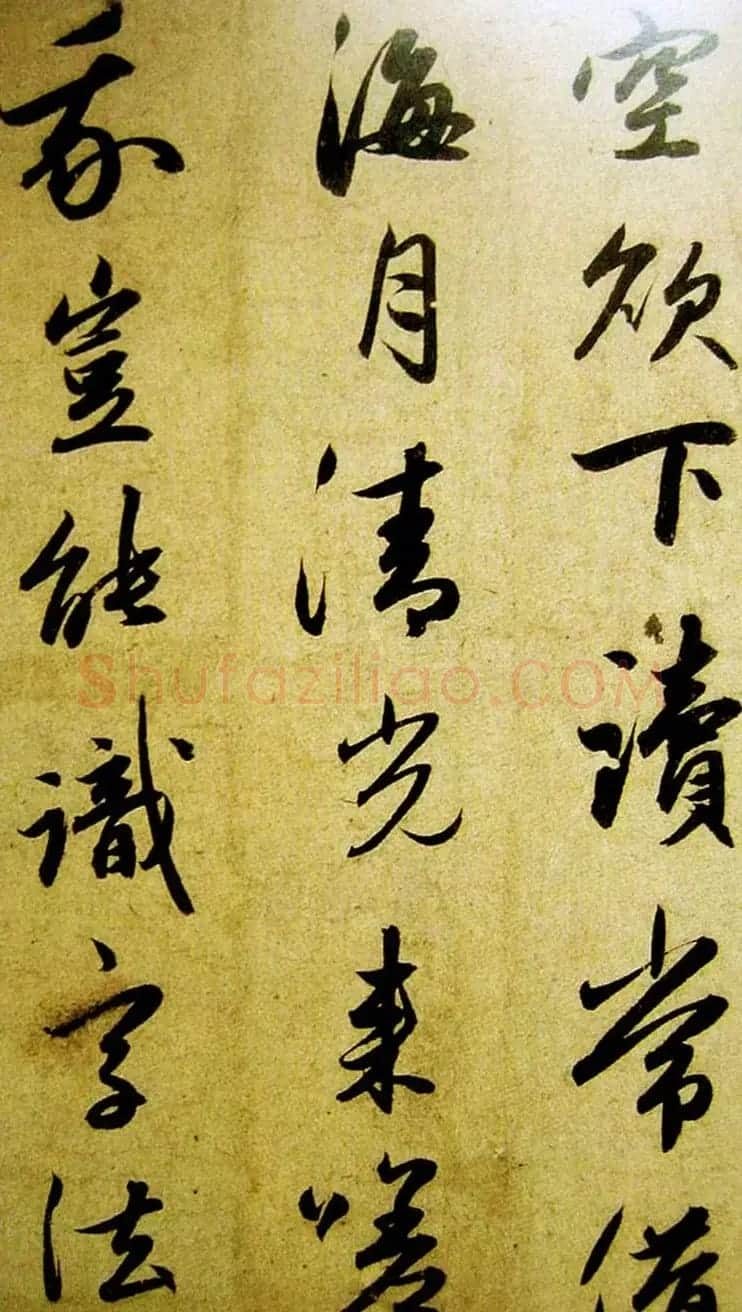 空欲下讀常借
海月清光来嗟
我豈能識字法
Shufaziliao.COM